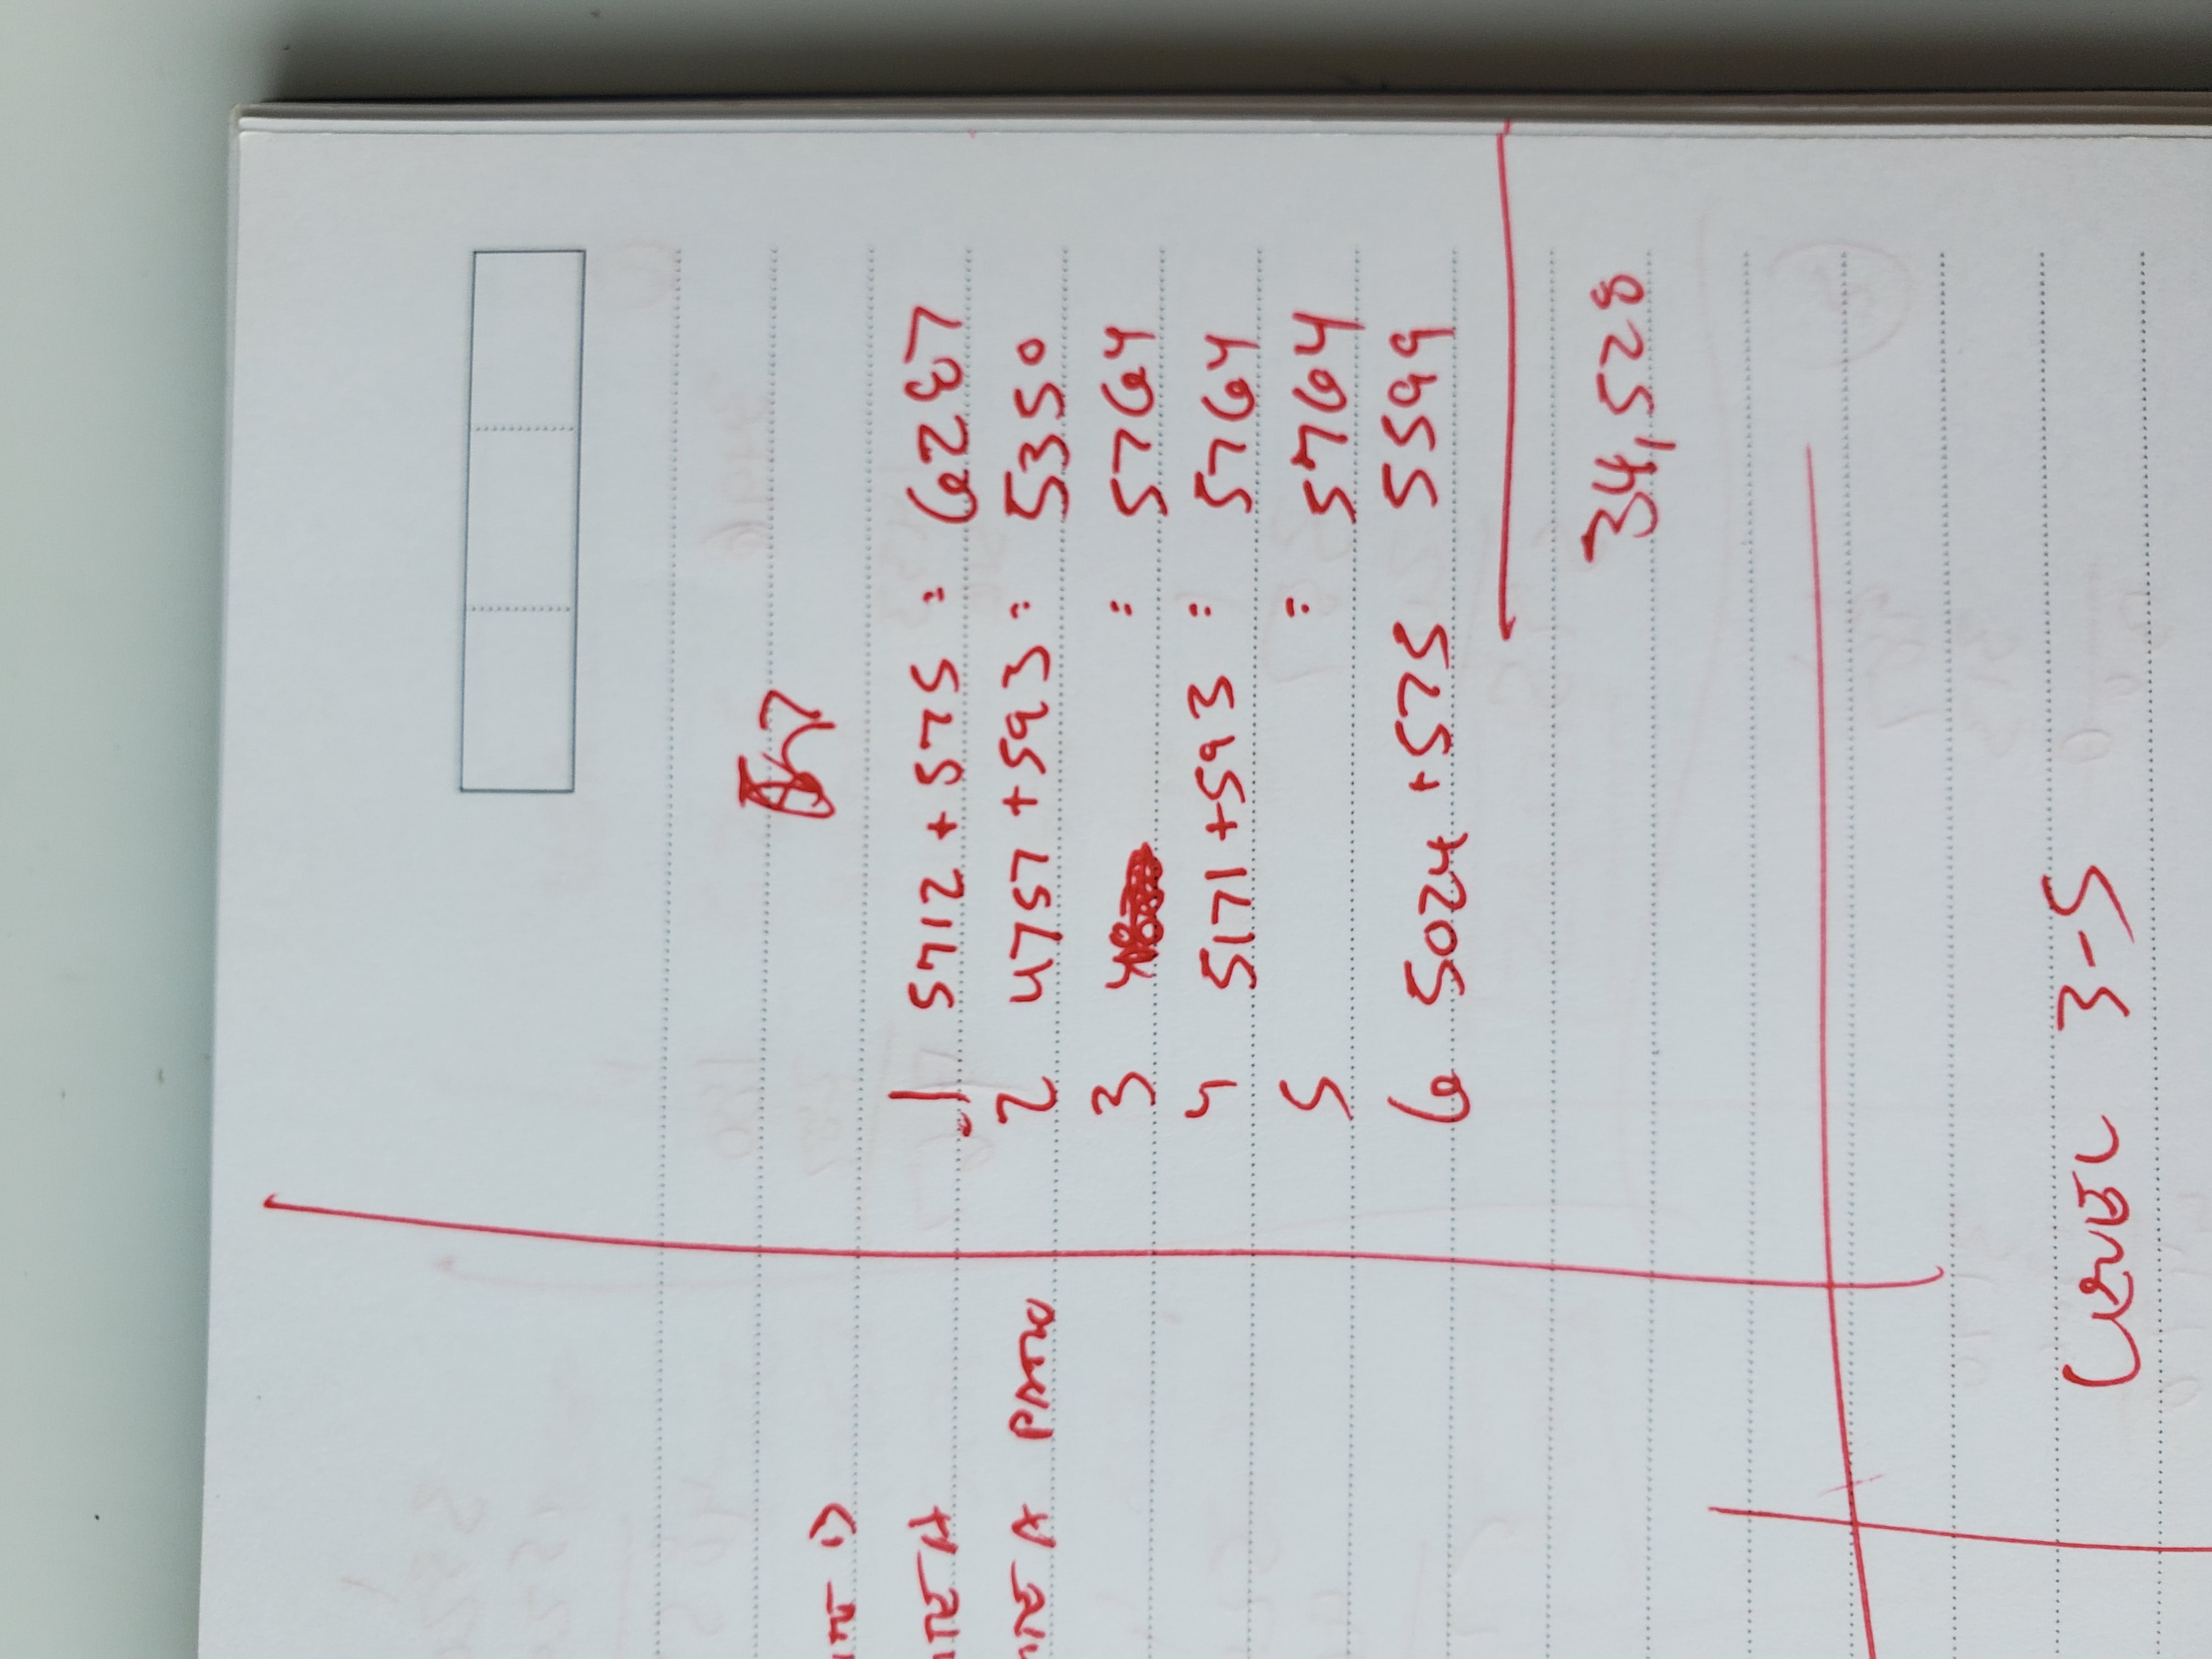 47
1. 5712 + 575 = 6287
2 4757 + 593 = 5350
3 = 5764
4 5171 + 593 = 5764
5 = 5764
6 5024 + 575 5599
34528
3-5